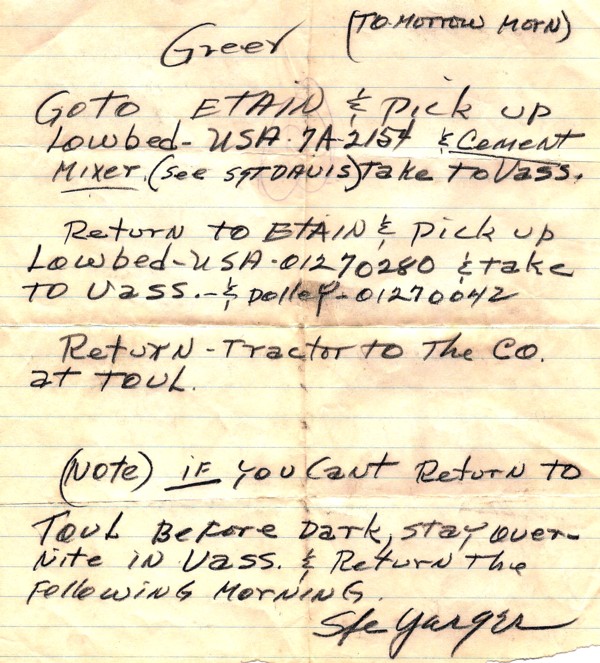 Greer (TOMORROW MORN)
GOTO ETAIN & Pick up
Lowbed- USA-7A-2154 & Cement
Mixer. (see SGT DAVIS) take to Vass.
Return to ETAIN & Pick up
Lowbed-USA-01270280 & take
TO Vass.-& Dolley-01270042
Return-Tractor to The Co.
at TOUL.
(Note) IF you Cant Return TO
TOUL Before Dark, stay over-
Nite in Vass. & Return The
Following MORNING.
Sfc Yarger